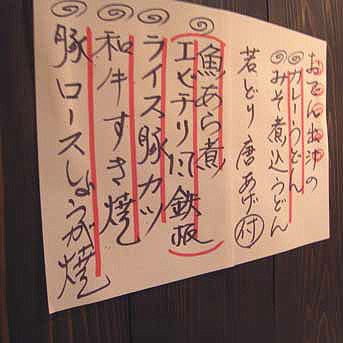 おでん出汁の
カレーうどん
みそ煮込うどん
若どり唐あげ付
魚あら煮
エビチリ 鉄板
ライス豚カツ
和牛すき焼
豚ロースしょうが焼